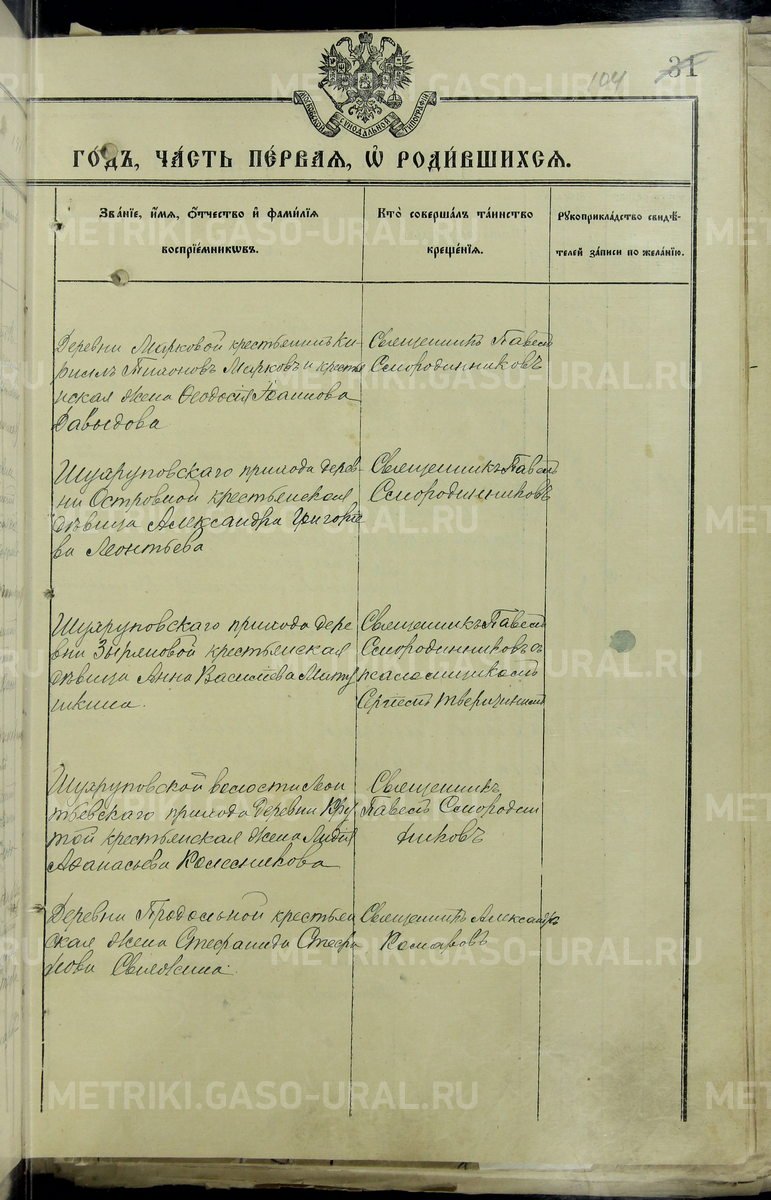 104 31
МОСКОВСКОЙ СѴНОДАЛЬНОЙ ТИПОГРАФІИ
ГО́ДЪ, ЧА́СТЬ ПЕ́РВАЯ, Ѿ РОДИ́ВШИХСЯ.
Зва́нїе, и́мя, ѻ҆́тчество и҆ фами́лїя
воспрїе́мникѡвъ.
Кто̀ соверша́лъ та́инство
креще́нїѧ.
Рꙋкоприкла́дство свидѣ́-
телей за́писи по жела́нїю.
Деревни Марковой крестьянинъ Ки-
риллъ Тихоновъ Марковъ и крестья
нская жена Ѳеодосія Іоаннова
Давыдова
Священникъ Павелъ
Смородинниковъ
Шуяруповскаго прихода дерев-
ни Островной крестьянская
дѣвица Александра Григорье
ва Леонтьева
Священникъ Павелъ
Смородинниковъ
Шуяруповскаго прихода дере
вни Зыряновой крестьянская
дѣвица Анна Васильева Мату
шкина.
Священникъ Павелъ
Смородинниковъ съ
псаломщикомъ
Сергіемъ Тверитинымъ
Шуяруповской волости Леон
тьевскаго прихода деревни Кру
той крестьянская жена Лидія
Аѳанасьева Колесникова
Священникъ
Павелъ Смородин
никовъ
Деревни Продольной крестьян
ская жена Стефанида Стефа
нова Свяжина.
Священникъ Александръ
Комаровъ
METRIKI.GASO-URAL.RU